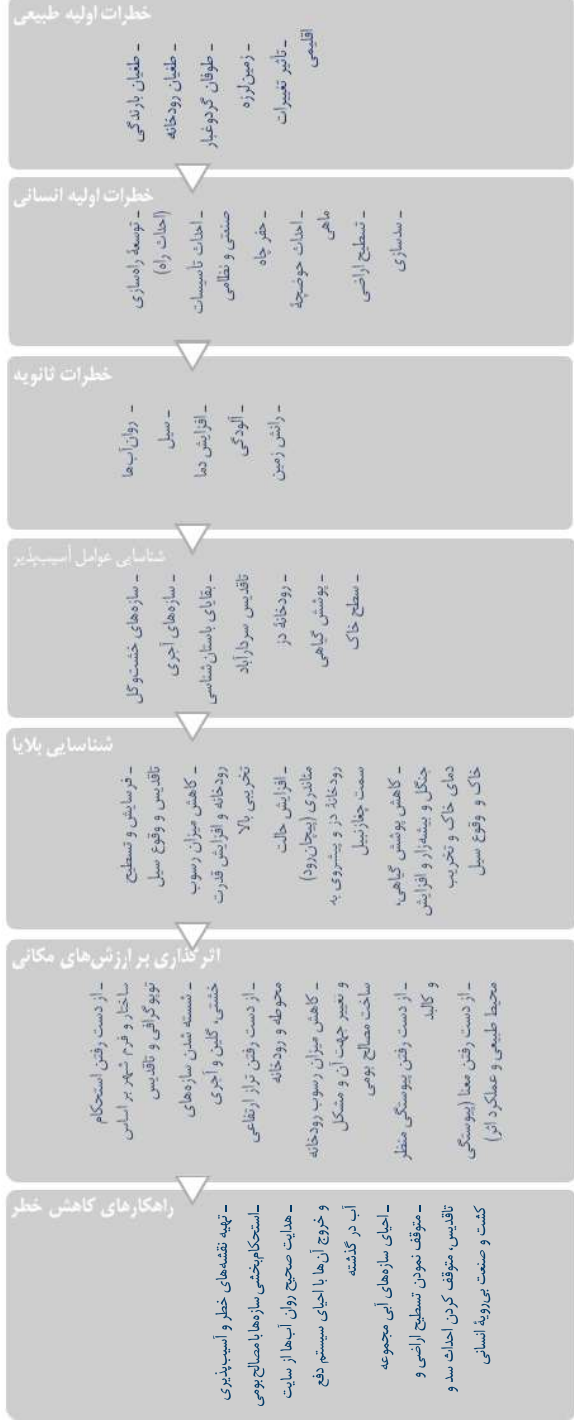 خطرات اولیه طبیعی
ـ طغیان بارندگی
ـ طغیان رودخانه
ـ طوفان گردوغبار
ـ زمین‌لرزه
ـ تأثیر تغییرات
اقلیمی
خطرات اولیه انسانی
ـ توسعۀ راه‌سازی
(احداث راه)
ـ احداث تأسیسات
صنعتی و نظامی
ـ حفر چاه
ـ احداث حوضچۀ
ماهی
ـ تسطیح اراضی
ـ سدسازی
خطرات ثانویه
ـ روان‌آب‌ها
ـ سیل
ـ افزایش دما
ـ آلودگی
ـ رانش زمین
شناسایی عوامل آسیب‌پذیر
ـ سازه‌های خشت‌وگل
ـ سازه‌های آجری
ـ بقایای باستان‌شناسی
تاقدیس سردارآباد
ـ رودخانۀ دز
ـ پوشش گیاهی
ـ سطح خاک
شناسایی بلایا
ـ فرسایش و تسطیح
تاقدیس و وقوع سیل
ـ کاهش میزان رسوب
رودخانه و افزایش قدرت
تخریبی بالا
ـ افزایش حالت
مئاندری (پیچان‌رود)
رودخانۀ دز و پیشروی به
سمت چغازنبیل
ـ کاهش پوشش گیاهی،
جنگل و بیشه‌زار و افزایش
دمای خاک و تخریب
خاک و وقوع سیل
اثرگذاری بر ارزش‌های مکانی
ـ از دست رفتن استحکام
ساختار و فرم شهر بر اساس
توپوگرافی و تاقدیس
ـ شسته شدن سازه‌های
خشتی، گلین و آجری
ـ از دست رفتن تراز ارتفاعی
محوطه و رودخانه
ـ کاهش میزان رسوب رودخانه
و تغییر جهت آن و مشکل
ساخت مصالح بومی
ـ از دست رفتن پیوستگی منظر
و کالبد
ـ از دست رفتن معنا (پیوستگی
محیط طبیعی و عملکرد اثر)
راهکارهای کاهش خطر
ـ تهیه نقشه‌های خطر و آسیب‌پذیری
ـ استحکام‌بخشی سازه‌ها با مصالح بومی
ـ هدایت صحیح روان آب‌ها از سایت
و خروج آن‌ها با احیای سیستم دفع
آب در گذشته
ـ احیای سازه‌های آبی مجموعه
ـ متوقف نمودن تسطیح اراضی و
تاقدیس، متوقف کردن احداث سد و
کشت و صنعت بی‌رویۀ انسانی